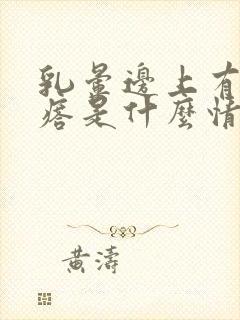 乳暈邊上有
痞是什麼情
黃濤